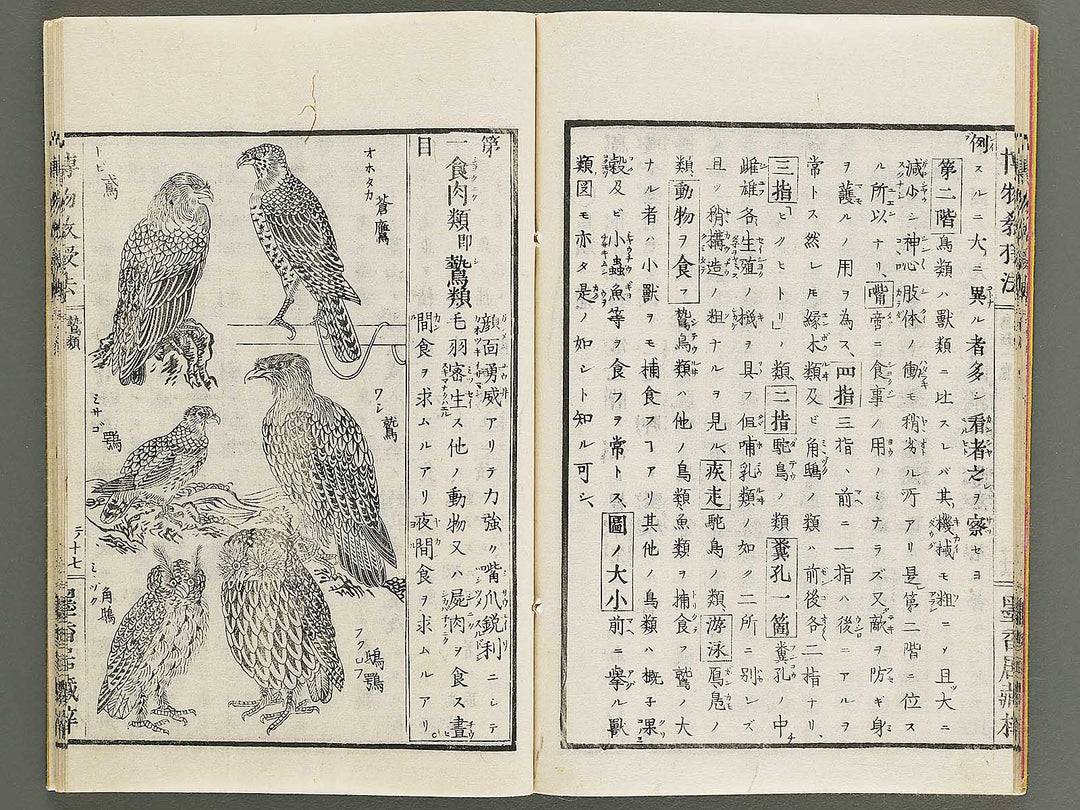 例スルニ大ニ異ル者多シ看者之ヲ察セヨ
第二階鳥類ハ獣類ニ比スレバ其機械モ粗ニシ且大ニ
減少シ神心肢体ノ働モ稍劣ル所アリ是第二階ニ位ス
ル所以ナリ、嘴啻ニ食事ノ用ノミナラズ又敵ヲ防ギ身
ヲ護ルノ用ヲ為ス、四指三指、前ニ一指ハ後ニアルヲ
常トス然レモ縁木類及ビ角鴟ノ類ハ前後各二指ナリ、
三指「ヒクヒトリ」ノ類二指駝鳥ノ類糞孔一箇糞孔ノ中
雌雄各生殖ノ機ヲ具フ但哺乳類ノ如ク二所ニ別レズ
且ツ稍構造ノ粗ナルヲ見ル疾走駝鳥ノ類游泳鳫鳧ノ
類動物ヲ食フ鷙鳥類ハ他ノ鳥類魚類ヲ捕食フ鷲ノ大
ナル者ハ小獣ヲモ捕食フヿアリ其他ノ鳥類ハ概子果
穀及ビ小蟲魚等ヲ食フヲ常トス圖ノ大小前ニ擧ル獣
類図モ亦タ是ノ如シト知ル可シ、
博物教授法
第一目
食肉類即鷙鳥類
顔面勇威アリテ力強ク嘴爪鋭利ニシテ
毛羽密生ス他ノ動物又ハ屍肉ヲ食ス晝
間食ヲ求ムルアリ夜間食ヲ求ムルアリ。
オホタカ 蒼鷹
トビ 鳶
ワシ 鷲
ミサゴ 鶚
フクロフ 鴟鴞
ミヽツク 角鴟
鷙類
二ノ十七